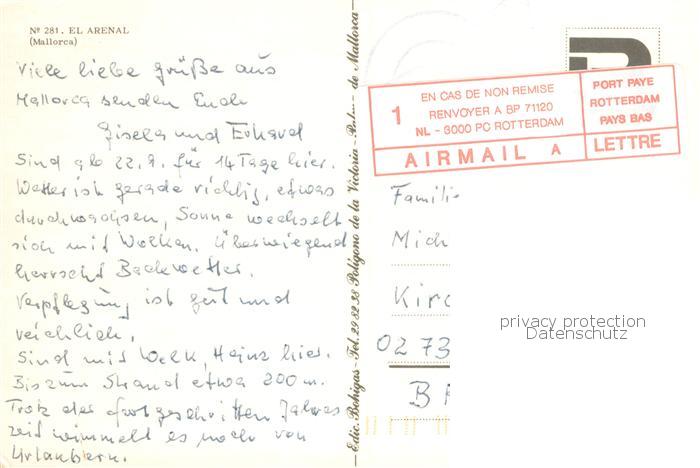 Nº 281. EL ARENAL
(Mallorca)
Viele liebe Grüße aus
Mallorca senden Euch
Gisela und Erhard
Sind ab 22.9. für 14 Tage hier.
Wetter ist gerade richtig, etwas
durchwachsen, Sonne wechselt
sich mit Wolken. Überwiegend
herrscht Badewetter.
Verpflegung ist gut und
reichlich.
Sind mit Heinz hier.
Bis zum Strand etwa 200 m.
Trotz der fortgeschritten Jahres
zeit wimmelt es noch von
Urlaubern.
Edic. Bohigas - Tel. 29 82 38 Polígono de la Victoria - de Mallorca
EN CAS DE NON REMISE
1 RENVOYER A BP 71120
NL - 3000 PC ROTTERDAM
PORT PAYE
ROTTERDAM
PAYS BAS
AIRMAIL A LETTRE
Famili
Mich
Kirc
02 73
B
privacy protection
Datenschutz